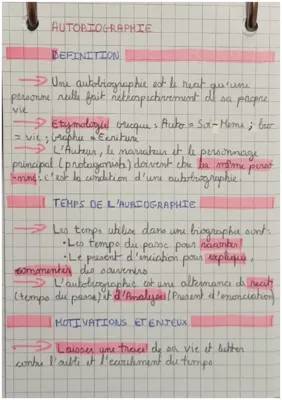 AUTOBIOGRAPHIE
DEFINITION
→ Une autobiographie est le recit qu'une
personne réelle fait rétrospectivement de sa propre
vie
→ Etymologie Grecque: Auto = Soi-Meme; bio
= vie; Graphie = Ecriture
→ L'Auteur, le narrateur et le personnage
principal (protagoniste) doivent etre la même person
-nne: c'est la condition d'une autobiographie.
TEMPS DE L'AUROGRAPHIE
→ Les temps utilisé dans une biographie sont:
• Les temps du passé pour raconter
• Le present d'enonciation pour expliquer,
commenter des souvenirs
→ L'autobiographie est une alternance de recit
(temps du passé) et d'Analyse (Present d'enonciation)
MOTIVATIONS ET ENJEUX
→ Laisser une trace de sa vie et lutter
contre l'oubli et l'ecoulement du temps